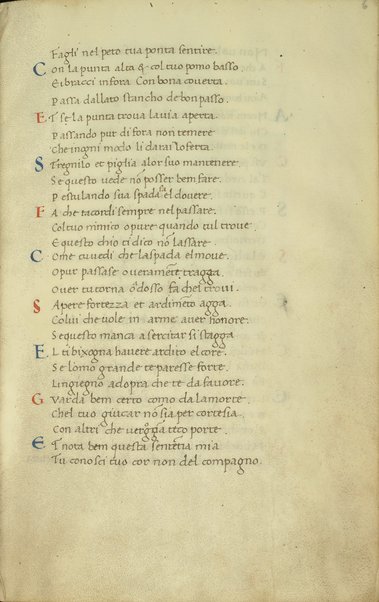 6
Fagli nel peto tua ponta sentire.
Con la punta alta & col tuo pomo basso.
E i bracci infora Con bona coverta.
Passa dallato stancho de bon passo.
Et se la punta trova la via aperta.
Passando pur di fora non temere
Che in ogni modo li darai l oferta.
Stregnilo et piglia alor suo mantenere
Se questo vede nō posser bem fare.
Pestulando sua spada fa el dovere.
Fa che tacordi sempre nel passare.
Col tuo nimico o pure quando tul trove
E questo chio ti dico nō lassare.
Come tu vedi che la spada el move.
O pur passase overamēte tragga.
Over tu torna ōdosso fa chel trovi.
Sapere fortezza et ardimēto agga.
Colui che vole in arme aver honore.
Se questo manca a sercitar si stagga
El ti bixogna havere ardito el core.
Se lomo grande te paresse forte.
Lingiegno adopra che te da favore.
Guarda bem certo como da la morte.
Chel tuo giucar nō sia per cortesia.
Con altri che vergōgna teco porte.
Et nota bem questa sentētia mia
Tu conosci tuo cor non del compagno